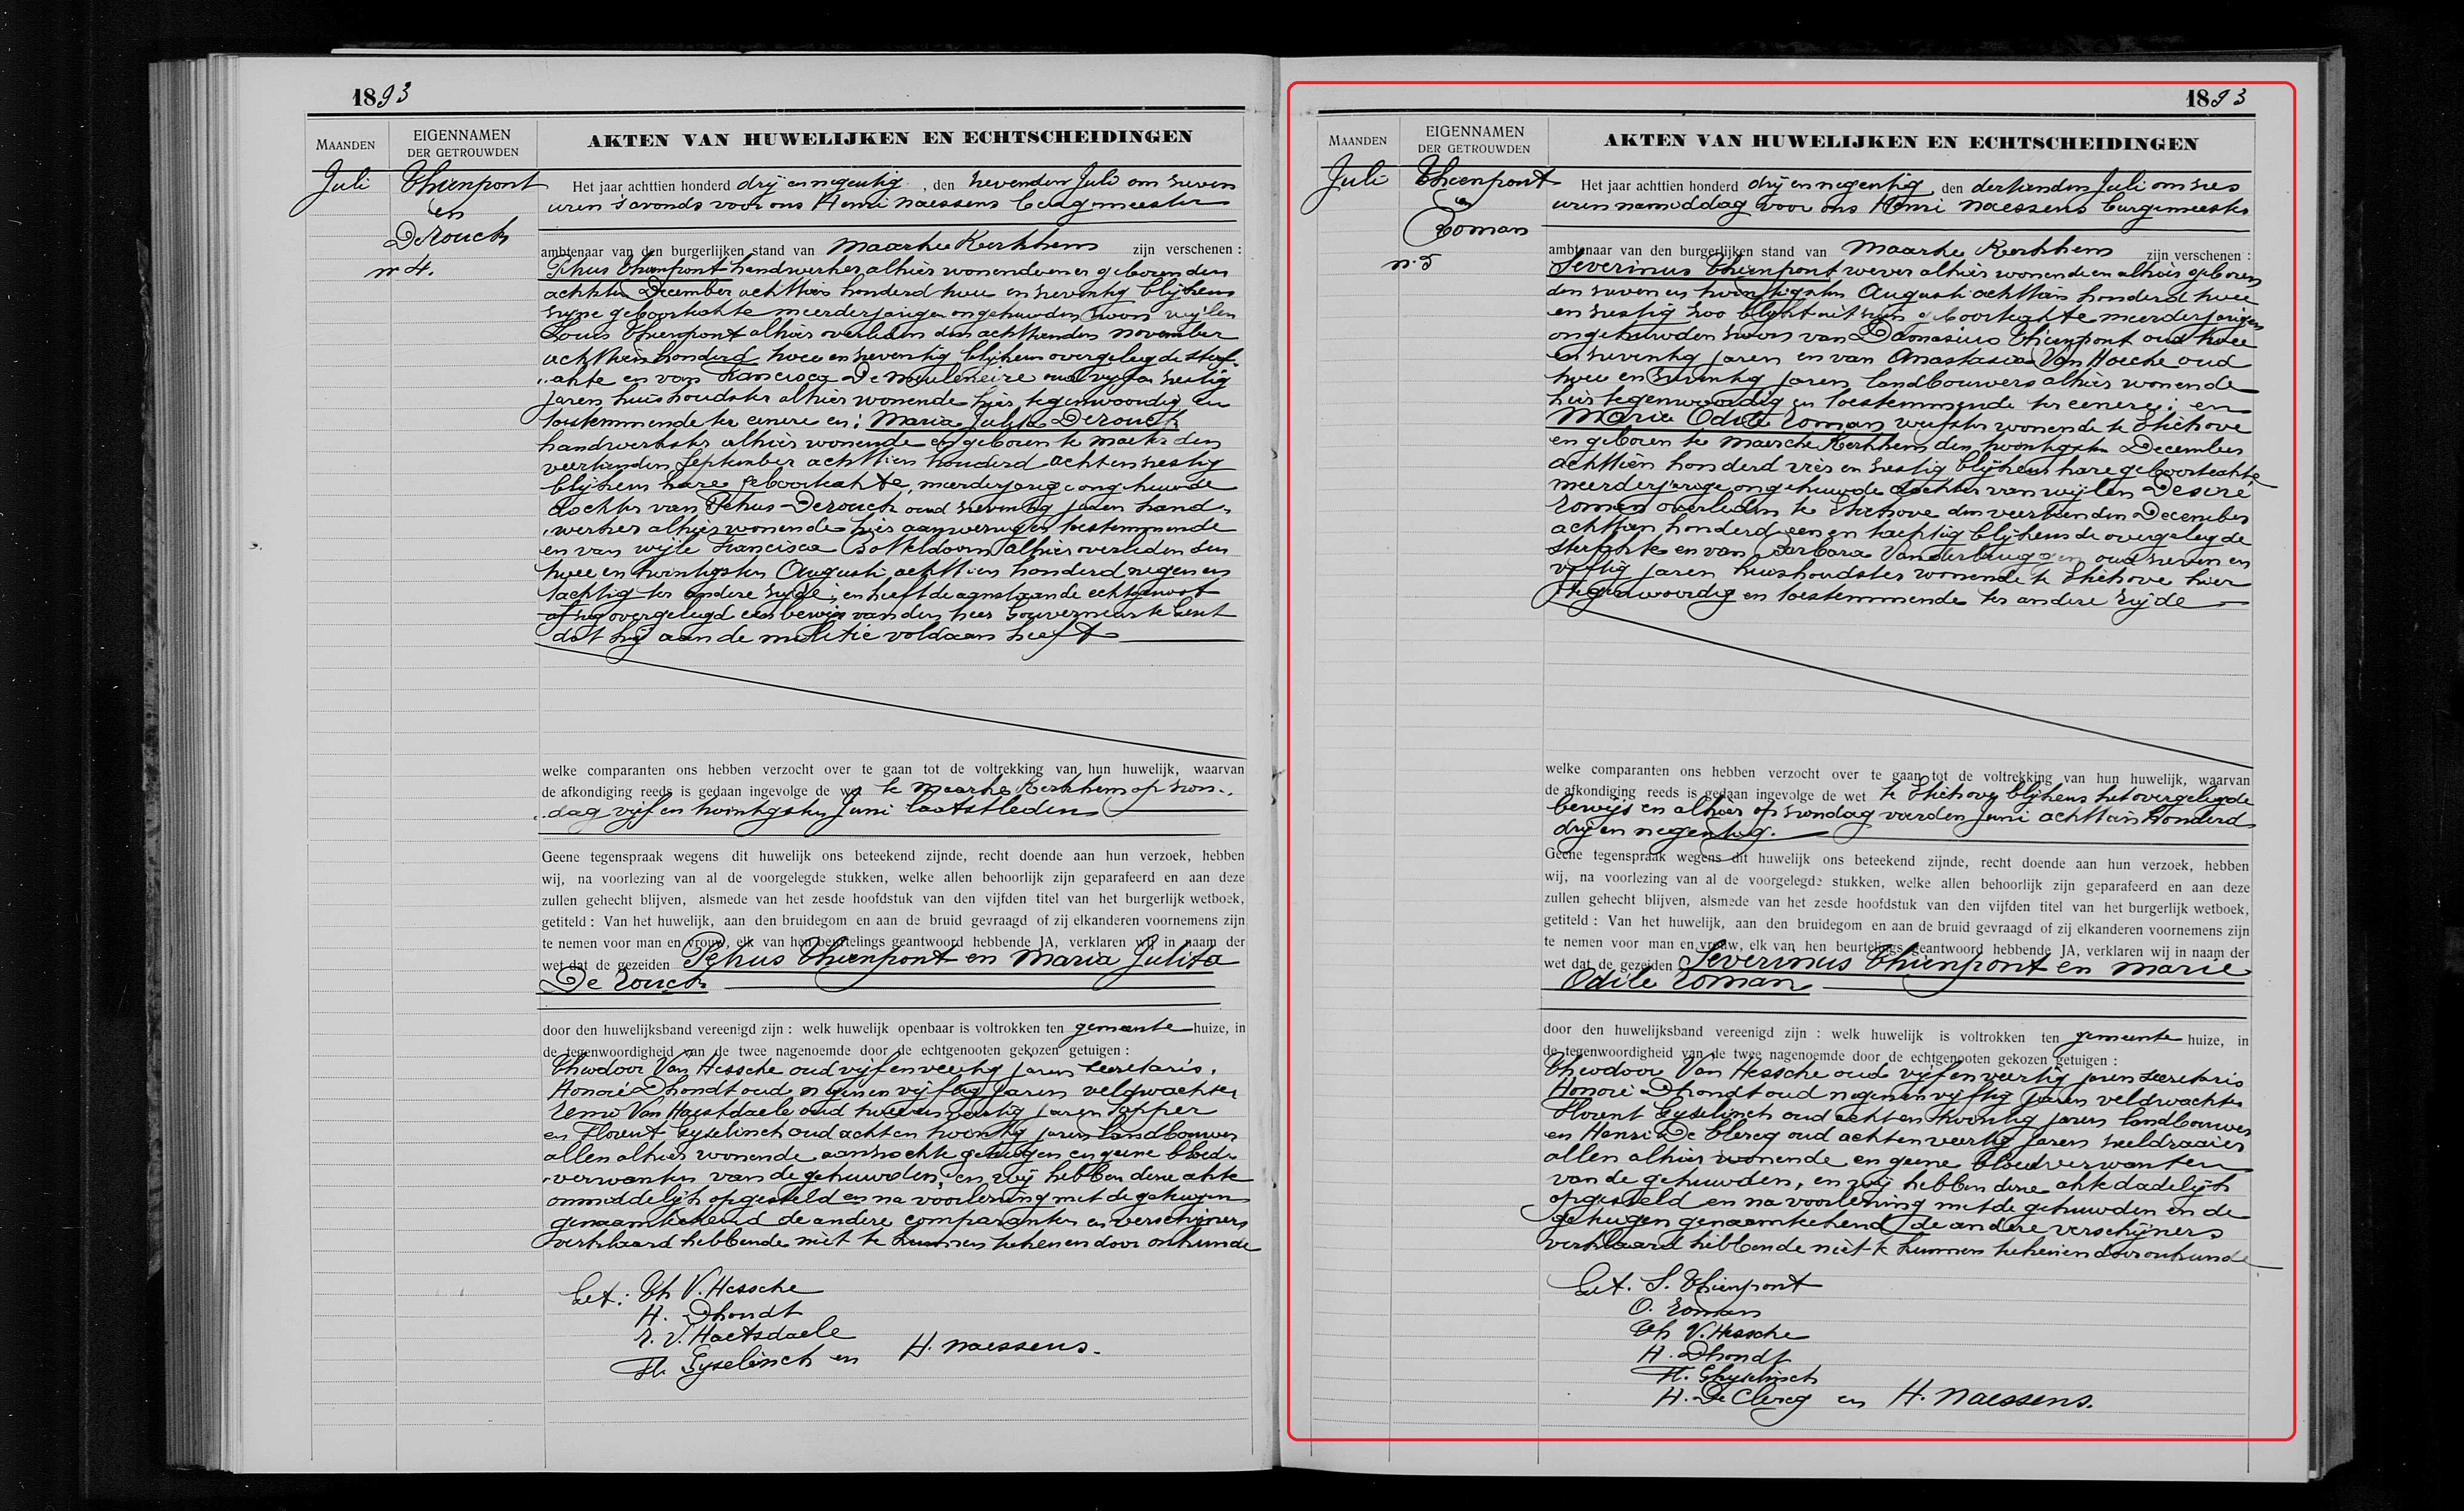 1893
MAANDEN
EIGENNAMEN
DER GETROUWDEN
AKTEN VAN HUWELIJKEN EN ECHTSCHEIDINGEN
Juli
Thienpont
en
De Rouck
nr 4.
Het jaar achttien honderd drij en negentig, den zevenden Juli om zeven
uren s'avonds voor ons Henri Naessens burgemeester
ambtenaar van den burgerlijken stand van Maarke Kerkhem zijn verschenen :
Petrus Thienpont handwerker alhier wonende en er geboren den
achtsten December achttien honderd twee en zeventig blijkens
zijne geboorteakte meerderjarigen ongehuwden zoon wijlen
Louis Thienpont alhier overleden den achttienden November
achttien honderd twee en zeventig blijkens overgelegde sterf-
akte en van Francisca De Meuleneire oud vijf en zestig
jaren huishoudster alhier wonende hier tegenwoordig en
toestemmende ter eenere en : Maria Julita Derouck
handwerkster alhier wonende en geboren te Maeter den
veertienden September achttien honderd acht en zestig
blijkens hare geboorteakte, meerderjarige ongehuwde
dochter van Petrus Derouck oud zeventig jaren hand-
werker alhier wonende hier aanwezig en toestemmende
en van wijle Francisca Botteldoorn alhier overleden den
twee en twintigsten Augusti achttien honderd negen en
tachtig ter andere zijde, en heeft de aanstaande echtgenoot
overgelegd een bewijs van den heer Gouverneur te Gent
dat hij aan de militie voldaan heeft
welke comparanten ons hebben verzocht over te gaan tot de voltrekking van hun huwelijk, waarvan
de afkondiging reeds is gedaan ingevolge de wet te Maarke Kerkhem op zon-
dag vijf en twintigsten Juni laatstleden
Geene tegenspraak wegens dit huwelijk ons beteekend zijnde, recht doende aan hun verzoek, hebben
wij, na voorlezing van al de voorgelegde stukken, welke allen behoorlijk zijn geparafeerd en aan deze
zullen gehecht blijven, alsmede van het zesde hoofdstuk van den vijfden titel van het burgerlijk wetboek,
getiteld : Van het huwelijk, aan den bruidegom en aan de bruid gevraagd of zij elkanderen voornemens zijn
te nemen voor man en vrouw, elk van hen beurtelings geantwoord hebbende JA, verklaren wij in naam der
wet dat de gezeiden Petrus Thienpont en Maria Julita
De Rouck
door den huwelijksband vereenigd zijn : welk huwelijk openbaar is voltrokken ten gemeente huize, in
de tegenwoordigheid van de twee nagenoemde door de echtgenooten gekozen getuigen :
Theodoor Van Hessche oud vijf en veertig jaren secretaris,
Honoré Dhondt oud negen en vijftig jaren veldwachter
Remo Van Haestdaele oud twee en dertig jaren tapper
en Florent Gyselinck oud acht en twintig jaren landbouwer
allen alhier wonende aanzochte getuigen en geene bloed-
verwanten van de gehuwden, en wij hebben deze akte
onmiddelijk opgesteld en na voorlezing met de getuigen
genaamteekend de andere comparanten en verschijners
verklaard hebbende niet te kunnen teekenen door onkunde
Get: Th V. Hessche
H. Dhondt
R. V. Haetsdaele
Fl. Gyselinck en H. Naessens.
1893
MAANDEN
EIGENNAMEN
DER GETROUWDEN
AKTEN VAN HUWELIJKEN EN ECHTSCHEIDINGEN
Juli
Thienpont
&
Roman
n. 5
Het jaar achttien honderd drij en negentig, den dertienden Juli om zes
uren namiddag voor ons Henri Naessens burgemeester
ambtenaar van den burgerlijken stand van Maarke Kerkhem zijn verschenen :
Severinus Thienpont wever alhier wonende en alhier geboren
den zeven en twintigsten Augusti achttien honderd twee
en zestig zoo blijkt uit zijn geboorteakte meerderjarigen
ongehuwden zoon van Damasius Thienpont oud twee
en zeventig jaren en van Anastasia Van Hoecke oud
twee en zeventig jaren landbouwers alhier wonende
hier tegenwoordig en toestemmende ter eenere : en
Marie Odile Roman weefster wonende te Etichove
en geboren te Maercke Kerkhem den twintigsten December
achttien honderd vier en zestig blijkens hare geboorteakte
meerderjarige ongehuwde dochter van wijlen Desiré
Roman overleden te Etichove den veertienden December
achttien honderd een en tachtig blijkens de overgelegde
sterfakte en van Barbara Vanderbruggen oud zeven en
vijftig jaren huishoudster wonende te Etichove hier
tegenwoordig en toestemmende ter andere zijde
welke comparanten ons hebben verzocht over te gaan tot de voltrekking van hun huwelijk, waarvan
de afkondiging reeds is gedaan ingevolge de wet te Etichove blijkens het overgelegde
bewijs en alhier op zondag vierden Juni achttien honderd
drij en negentig.
Geene tegenspraak wegens dit huwelijk ons beteekend zijnde, recht doende aan hun verzoek, hebben
wij, na voorlezing van al de voorgelegde stukken, welke allen behoorlijk zijn geparafeerd en aan deze
zullen gehecht blijven, alsmede van het zesde hoofdstuk van den vijfden titel van het burgerlijk wetboek,
getiteld : Van het huwelijk, aan den bruidegom en aan de bruid gevraagd of zij elkanderen voornemens zijn
te nemen voor man en vrouw, elk van hen beurtelings geantwoord hebbende JA, verklaren wij in naam der
wet dat de gezeiden Severinus Thienpont en Marie
Odile Roman
door den huwelijksband vereenigd zijn : welk huwelijk is voltrokken ten gemeente huize, in
de tegenwoordigheid van de twee nagenoemde door de echtgenooten gekozen getuigen :
Theodoor Van Hessche oud vijf en veertig jaren secretaris
Honoré Dhondt oud negen en vijftig jaren veldwachter
Florent Gyselinck oud acht en twintig jaren landbouwer
en Henri De Clercq oud acht en veertig jaren zeeldraaier
allen alhier wonende en geene bloedverwanten
van de gehuwden, en wij hebben deze akte dadelijk
opgesteld en na voorlezing met de gehuwden en de
getuigen genaamteekend, de andere verschijners
verklaard hebbende niet te kunnen teekenen door onkunde
Get. S. Thienpont
O. Roman
Th V. Hessche
H. Dhondt
Fl. Ghyselinck
H. De Clercq en H. Naessens.